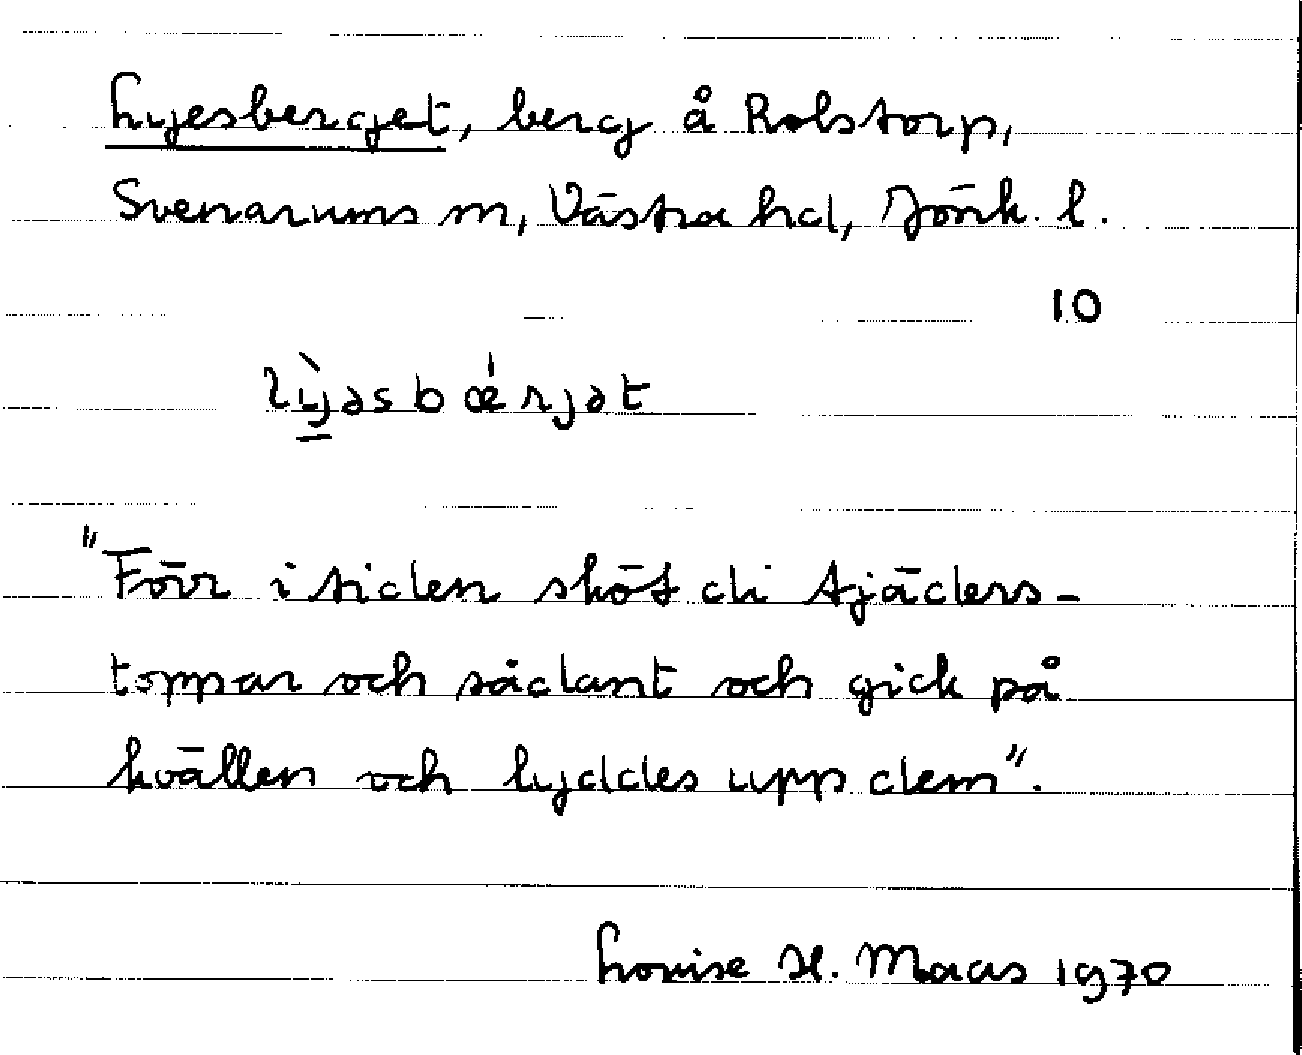 Lyesberget, berg å Rolstorp,
Svenarums sn, Västra hd, Jönk. l.
10
lỳ̱jəsbǽrjət
"Förr i tiden sköt di tjäders-
toppar och sådant och gick på
kvällen och lyddes upp dem".
Louise H. Maas 1970